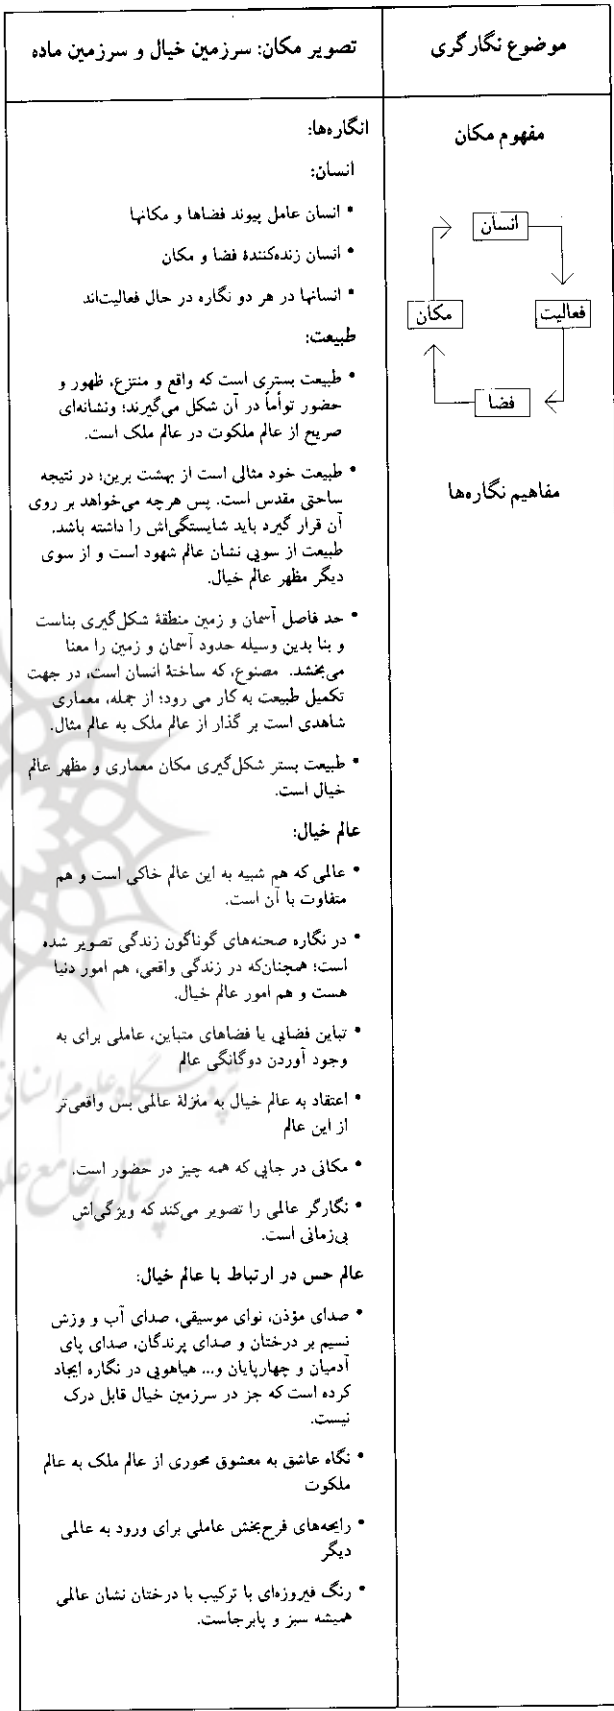 موضوع نگارگری
تصویر مکان: سرزمین خیال و سرزمین ماده
مفهوم مکان
انسان
فعالیت
فضا
مکان
مفاهیم نگاره‌ها
انگاره‌ها:
انسان:
• انسان عامل پیوند فضاها و مکانها
• انسان زنده‌کنندهٔ فضا و مکان
• انسانها در هر دو نگاره در حال فعالیت‌اند
طبیعت:
• طبیعت بستری است که واقع و منتزع، ظهور و
حضور توأماً در آن شکل می‌گیرند؛ ونشانه‌ای
صریح از عالم ملکوت در عالم ملک است.
• طبیعت خود مثالی است از بهشت برین؛ در نتیجه
ساحتی مقدس است. پس هرچه می‌خواهد بر روی
آن قرار گیرد باید شایستگی‌اش را داشته باشد.
طبیعت از سویی نشان عالم شهود است و از سوی
دیگر مظهر عالم خیال.
• حد فاصل آسمان و زمین منطقهٔ شکل‌گیری بناست
و بنا بدین وسیله حدود آسمان و زمین را معنا
می‌بخشد. مصنوع، که ساختهٔ انسان است، در جهت
تکمیل طبیعت به کار می رود؛ از جمله، معماری
شاهدی است بر گذار از عالم ملک به عالم مثال.
• طبیعت بستر شکل‌گیری مکان معماری و مظهر عالم
خیال است.
عالم خیال:
• عالمی که هم شبیه به این عالم خاکی است و هم
متفاوت با آن است.
• در نگاره صحنه‌های گوناگون زندگی تصویر شده
است؛ همچنان‌که در زندگی واقعی، هم امور دنیا
هست و هم امور عالم خیال.
• تباین فضایی یا فضاهای متباین، عاملی برای به
وجود آوردن دوگانگی عالم
• اعتقاد به عالم خیال به منزلهٔ عالمی بس واقعی‌تر
از این عالم
• مکانی در جایی که همه چیز در حضور است.
• نگارگر عالمی را تصویر می‌کند که ویژگی‌اش
بی‌زمانی است.
عالم حس در ارتباط با عالم خیال:
• صدای مؤذن، نوای موسیقی، صدای آب و وزش
نسیم بر درختان و صدای پرندگان، صدای پای
آدمیان و چهارپایان و... هیاهویی در نگاره ایجاد
کرده است که جز در سرزمین خیال قابل درک
نیست.
• نگاه عاشق به معشوق محوری از عالم ملک به عالم
ملکوت
• رایحه‌های فرح‌بخش عاملی برای ورود به عالمی
دیگر
• رنگ فیروزه‌ای با ترکیب با درختان نشان عالمی
همیشه سبز و پابرجاست.
پژوهشگاه علوم انسانی
پرتال جامع علو